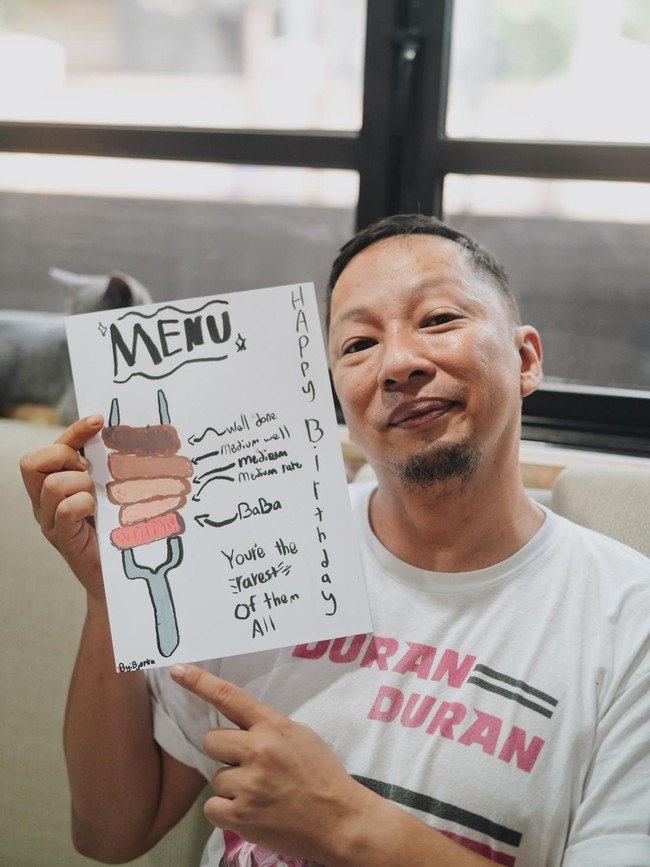 MENU
HAPPY Birthday
Well done
Medium well
Medium
Medium rare
BaBa
You're the
rarest
of them
All
By: Bjorka
DURAN
DURAN